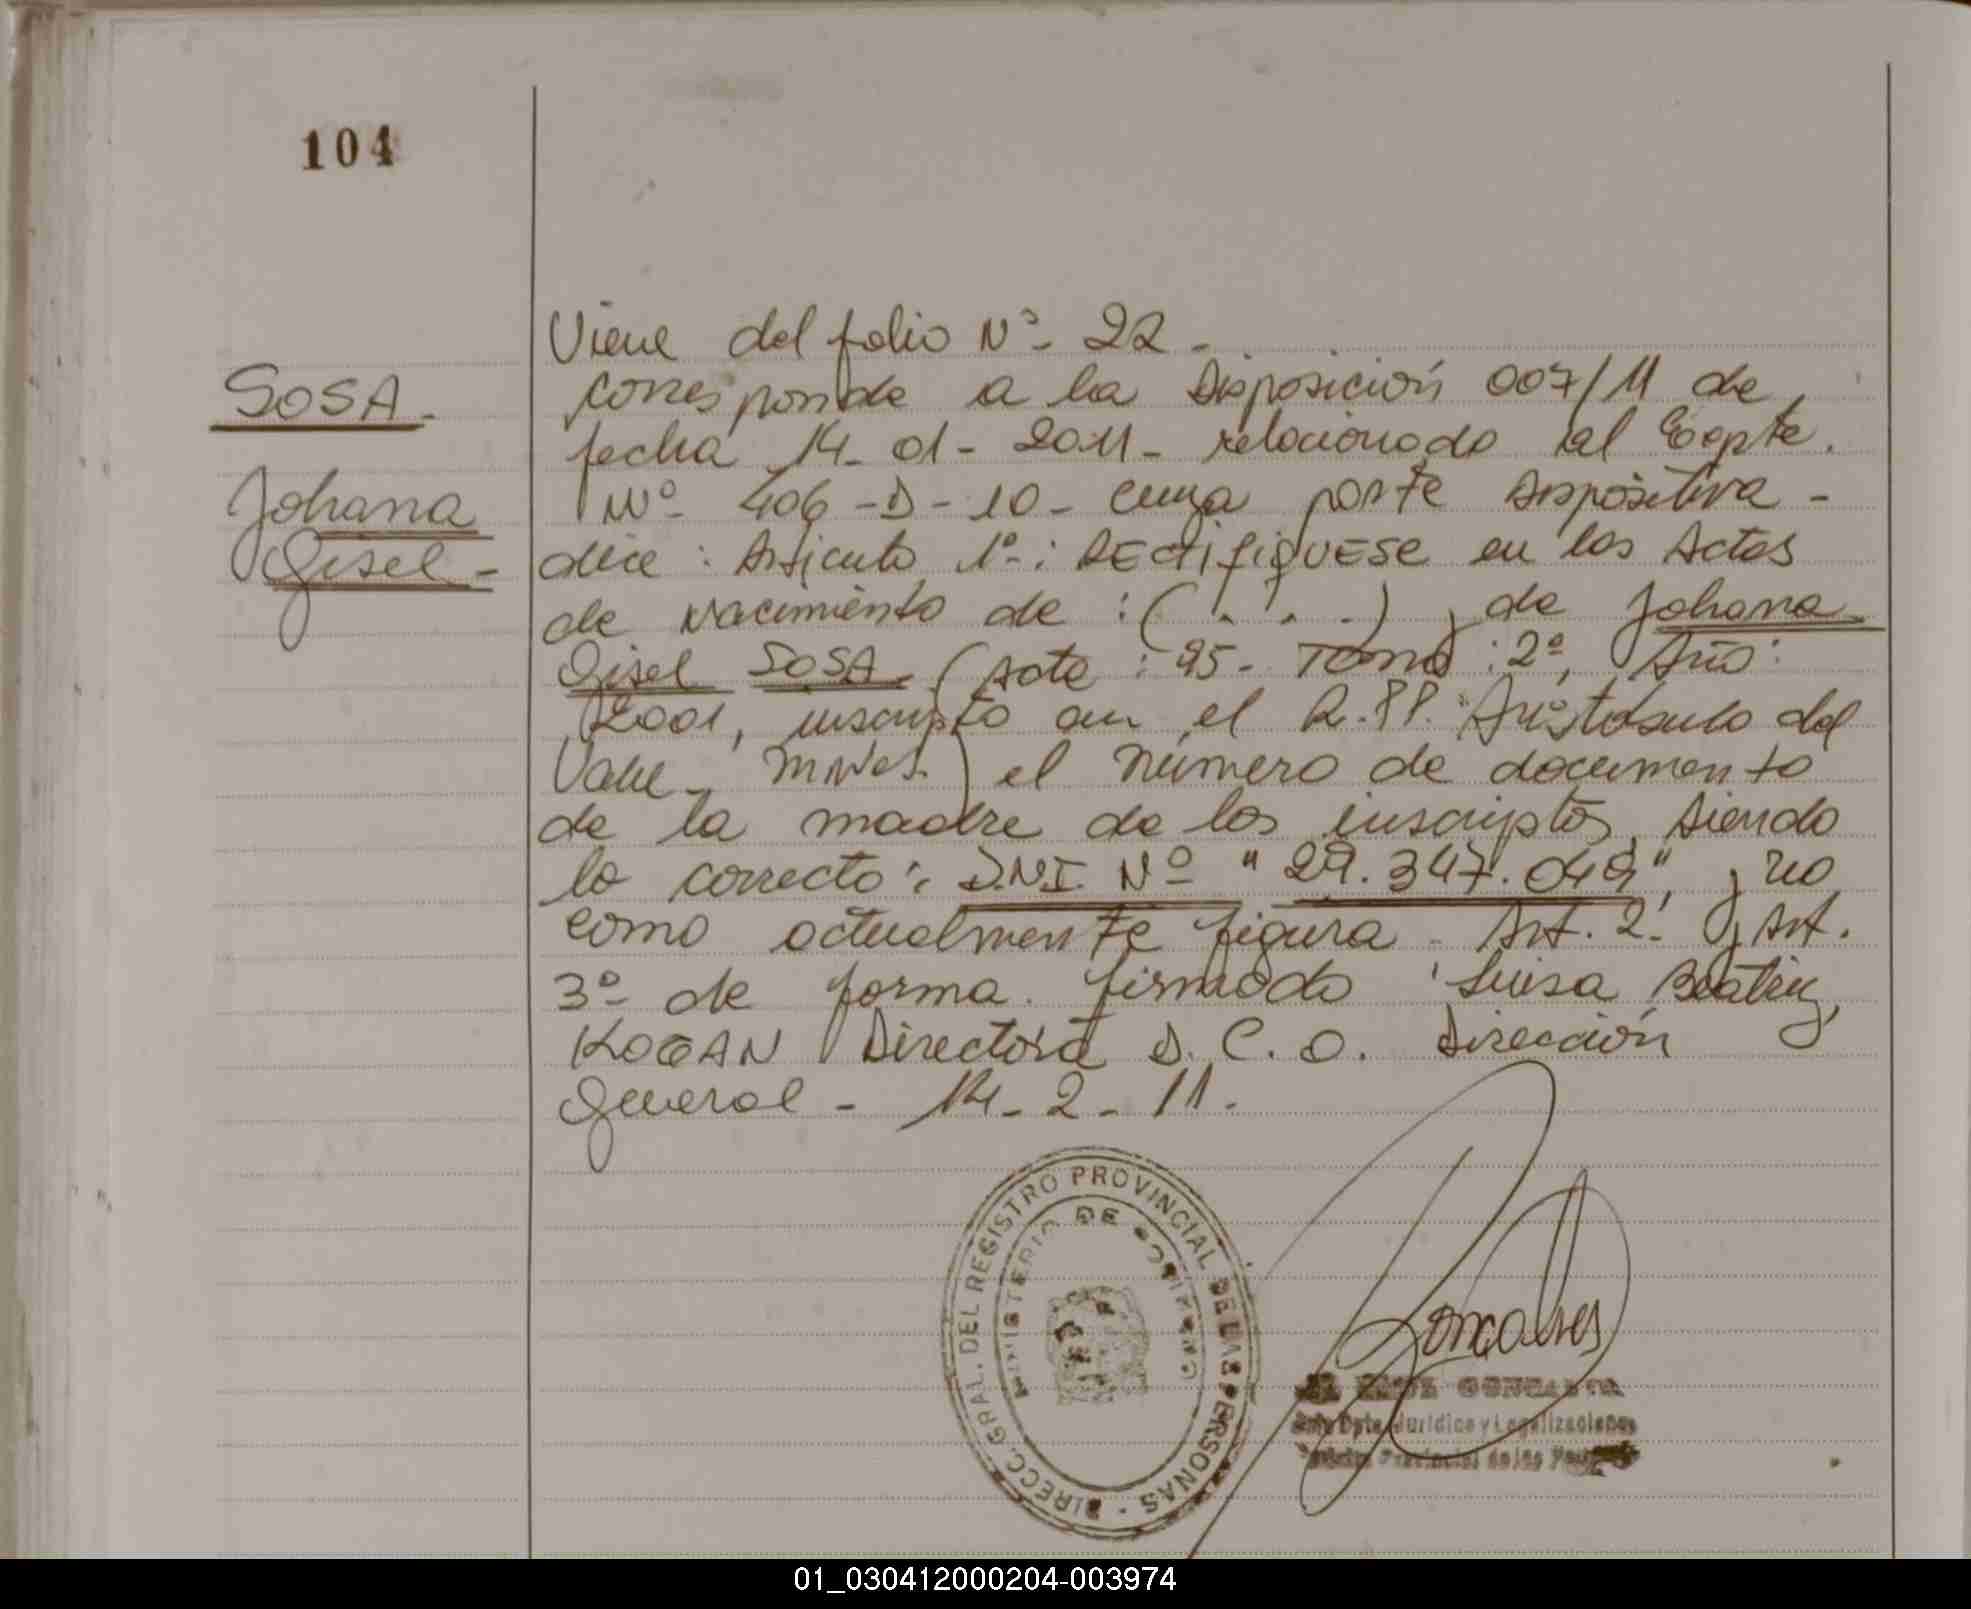 104
SOSA-
Johana
Gisel-
Viene del folio Nº- 22-
corresponde a la Disposición 007/11 de
fecha 14-01-2011- relacionado al Expte.
Nº- 406-D-10- cuya parte dispositiva-
dice: Articulo 1º-: RECtifiqUESE en las Actas
de Nacimiento de: (. . .), de Johana
Gisel SOSA. (Acta: 95- Tomo: 2º, Año:
2001, inscripto en el R.PP. Aristobulo del
Valle- Mnes.) el número de documento
de la madre de los inscriptos, siendo
lo correcto: D.N.I. Nº "29.347.049", y no
como actualmente figura- Art. 2º y Art.
3º- de forma. firmado Luisa Beatriz
KOGAN Directora D.C.O. Dirección
General- 14-2-11-
DIRECC. GRAL. DEL REGISTRO PROVINCIAL DE LAS PERSONAS
MINISTERIO DE GOBIERNO
Goncalves
Dpto Jurídico y Legalizaciones
Provincial de las
01_030412000204-003974